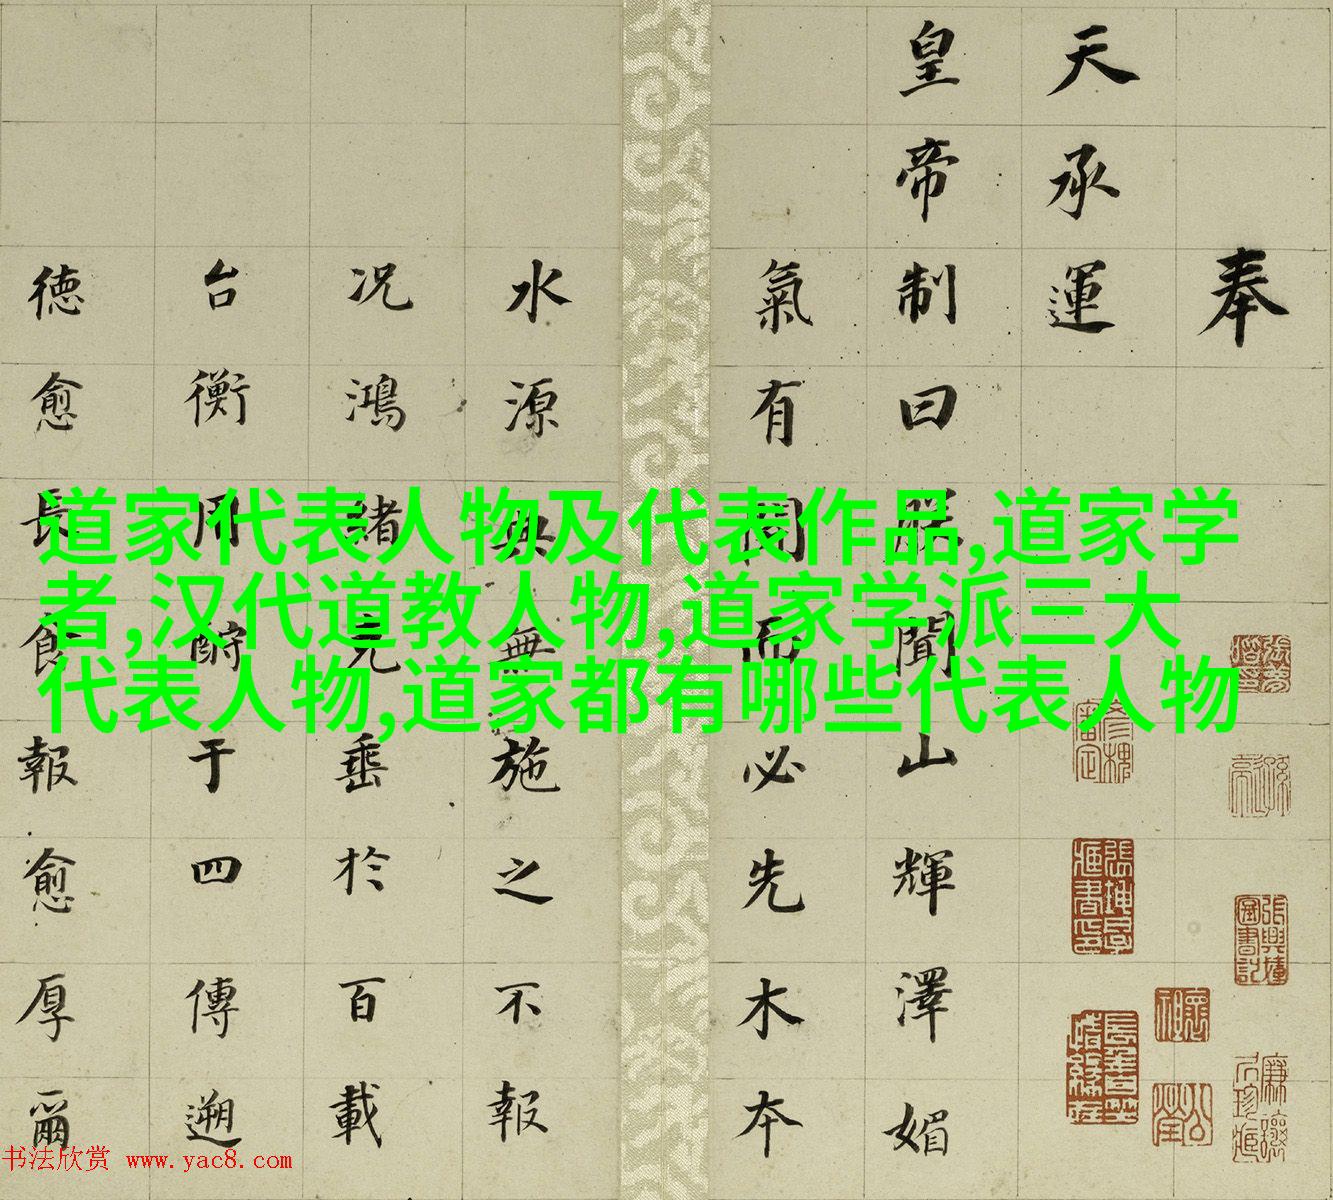 奉
天承運
皇帝制曰朕聞山輝澤媚
氣有開而必先木本
水源無施之不報
况鴻緒克垂於百載
台衡用酧于四傳遡
德愈長食報愈厚爾
道家代表人物及代表作品,道家学
者,汉代道教人物,道家学派三大
代表人物,道家都有哪些代表人物
书法欣赏 www.yac8.com